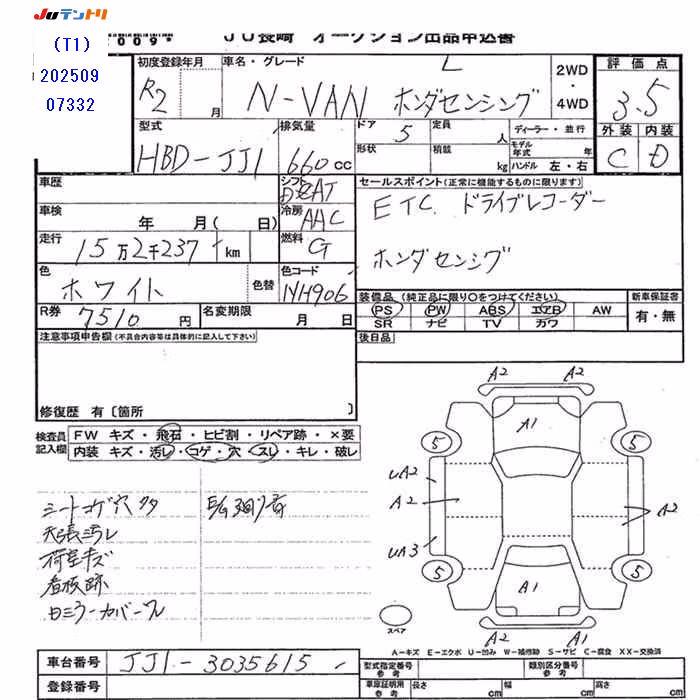 JUテントリ
(T1)
202509
07332
009
JU長崎 オークション出品申込書
初度登録年月
R2 月
車名・グレード
L
N-VAN ホンダセンシング
2WD
・
4WD
評価点
3.5
外装 内装
C D
型式
HBD-JJ1
排気量
660 cc
ドア 5
形状
定員 人
積載 kg
ディーラー・並行
モデル年式 年
ハンドル 左・右
車歴
シフト
CAT
車検 年 月( 日)
冷房
AAC
走行
15万2千237 km
燃料
G
色
ホワイト
色替
色コード
NH906
R券
7510 円
名変期限 月 日
セールスポイント(正常に機能するものに限ります)
ETC ドライブレコーダー
ホンダセンシグ
装備品 (純正品に限り○をつけてください)
PS PW ABS エアB AW
SR ナビ TV カワ
新車保証書
有・無
後日品
注意事項申告欄(不具合内容等は具体的に記入して下さい)
修復歴 有〔箇所 〕
検査員
記入欄
FW キズ・飛石・ヒビ割・リペア跡・×要
内装 キズ・汚レ・コゲ・穴・スレ・キレ・破レ
シートコゲ穴タタ
天張汚レ
荷室キズ
看板跡
日ミラーカバーワレ
E/G廻り音
A2 A2
A1
5 5
UA2
A2
UA3
A2
5 5
A1
A2 A1
スペア
A-キズ E-エクボ U-凹み W-補修跡 S-サビ C-腐食 XX-交換済
車台番号 JJ1-3035615
登録番号
型式指定番号
参考
類別区分番号
参考
車庫証明用
参考
長さ cm 幅 cm 高さ cm